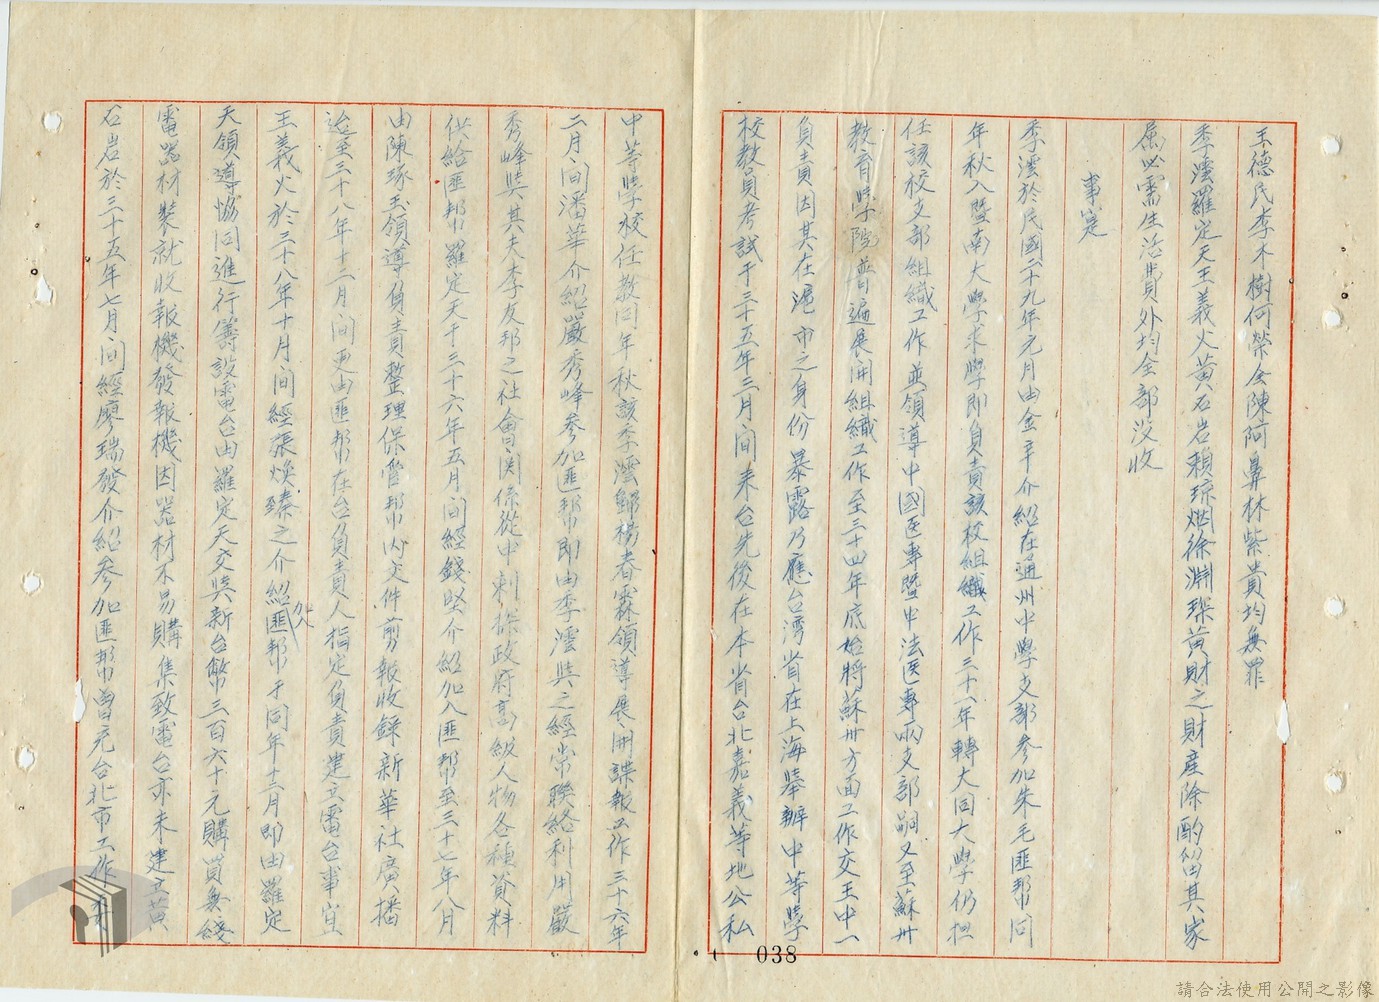 王德民李木樹何榮全陳阿鼻林紫貴均無罪
季澐羅定天王義火黃石岩賴琼烟徐淵琛黃財之財產除酌留其家
屬必需生活費外均全部没收
事寔
季澐於民國二十九年元月由金辛介紹在通州中學支部参加朱毛匪幫同
年秋入暨南大學求學即負責該校組織工作三十八年轉大同大學仍担
任該校支部組織工作並領導中國医專暨中法医專兩支部嗣又至蘇州
教育學院普遍展開組織工作至三十四年底始將蘇州方面工作交王中一
負責因其在滬市之身份暴露乃應台湾省在上海舉辦中等學
校教員考試于三十五年三月間来台先後在本省台北嘉義等地公私
中等學校任教同年秋該季澐歸楊春霖領導展開諜報工作三十六年
二月間潘華介紹嚴秀峰参加匪幫即由季澐與之經常聯絡利用嚴
秀峰與其夫李友邦之社會関係從中刺探政府高級人物各種資料
供給匪幫羅定天于三十六年五月間經錢堅介紹加入匪幫至三十七年八月
由陳琢玉領導負責整理保管幫内文件剪報收錄新華社廣播
迨至三十八年十二月間更由匪幫在台負責人指定負責建立電台事宜
王義火於三十八年十月間經張煥臻之介紹加入匪幫于同年十二月即由羅定
天領導協同進行籌設電台由羅定天交與新台幣三百六十元購買無綫
電器材裝就收報機發報機因器材不易購集致電台亦未建立黃
石岩於三十五年七月間經廖瑞發介紹参加匪幫曾充台北市工作
038
請合法使用公開之影像